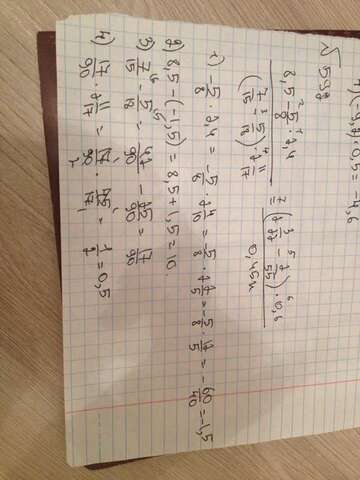 7) (-9,2) · 0,5 = -4,6
№592
(8,5 - 5/8 · 2,4) / ((7/15 - 5/18) · 2 11/17) = (2 3/22 - 2/55) · 0,6 / 0,45x
1) -5/8 · 2,4 = -5/8 · 2 4/10 = -5/8 · 2 2/5 = -5/8 · 12/5 = -60/40 = -1,5
2) 8,5 - (-1,5) = 8,5 + 1,5 = 10.
3) 7/15 - 5/18 = 42/90 - 25/90 = 17/90
4) 17/90 · 2 11/17 = 17/90 · 45/17 = 1/2 = 0,5